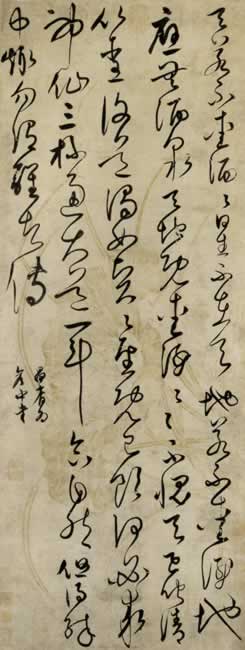 天若不愛酒々星不在天地若不愛酒地
應無酒泉天地既愛酒々々不愧天已聞清
比聖復道濁如賢々聖既已飲何必求
神仙三杯通大道一斗合自然但得醉
中趣勿謂醒者傳